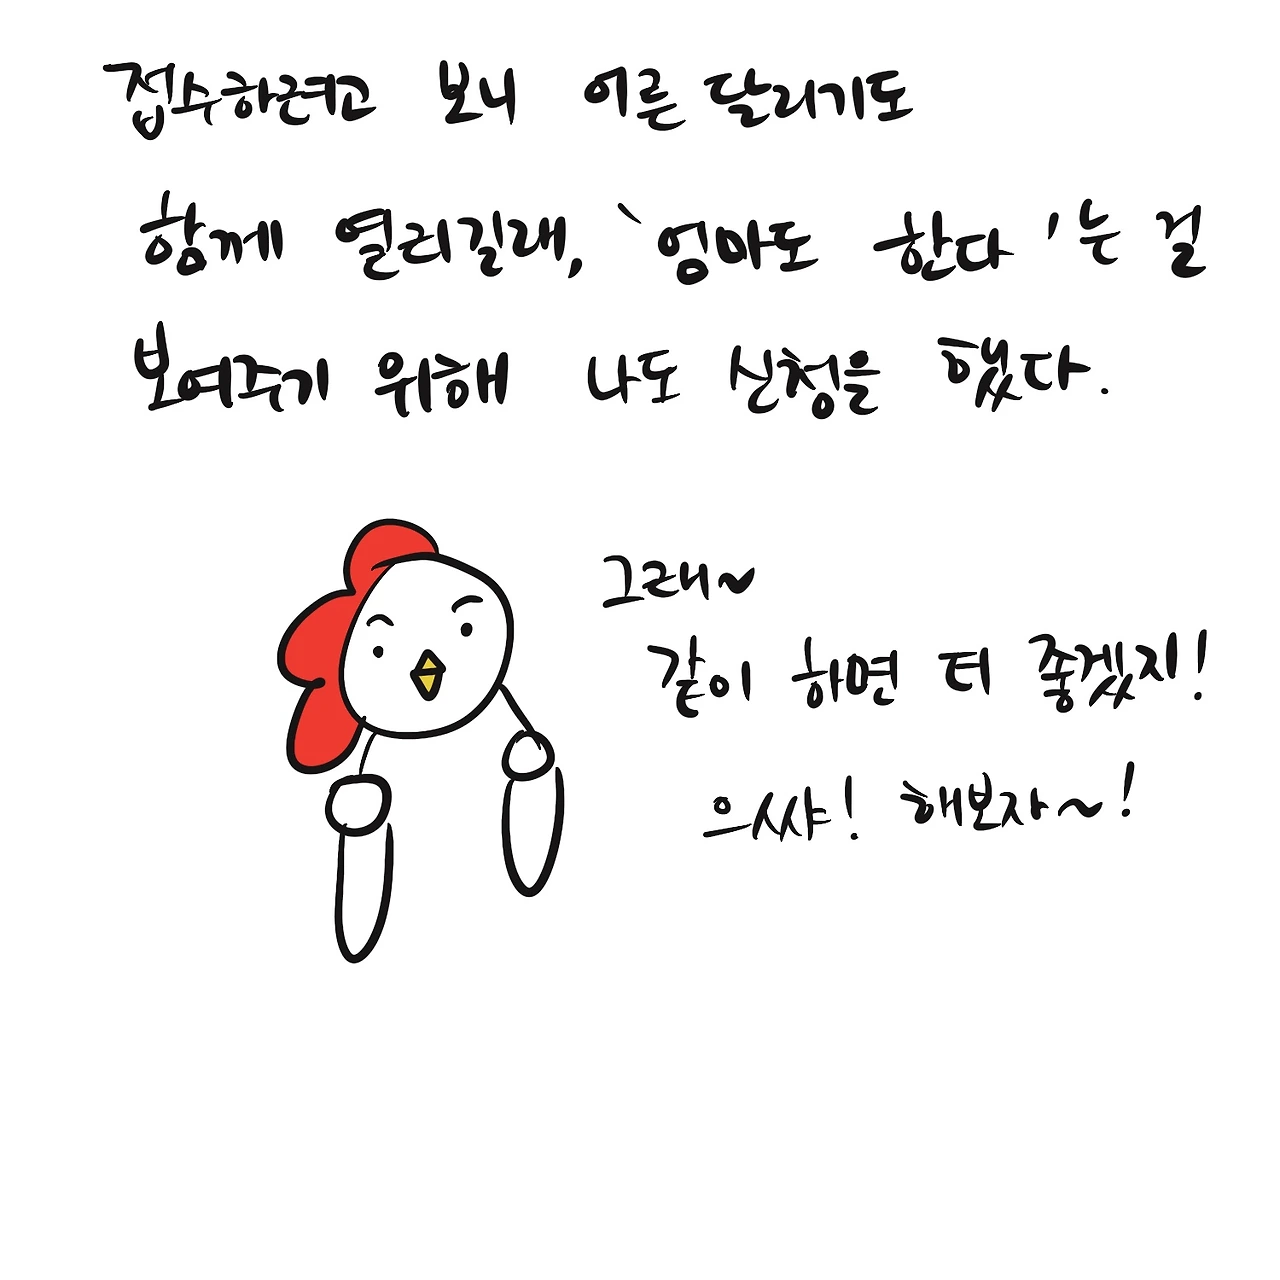 접수하려고 보니 어른 달리기도
함께 열리길래, '엄마도 한다'는 걸
보여주기 위해 나도 신청을 했다.
그래~
같이 하면 더 좋겠지!
으쌰! 해보자~!